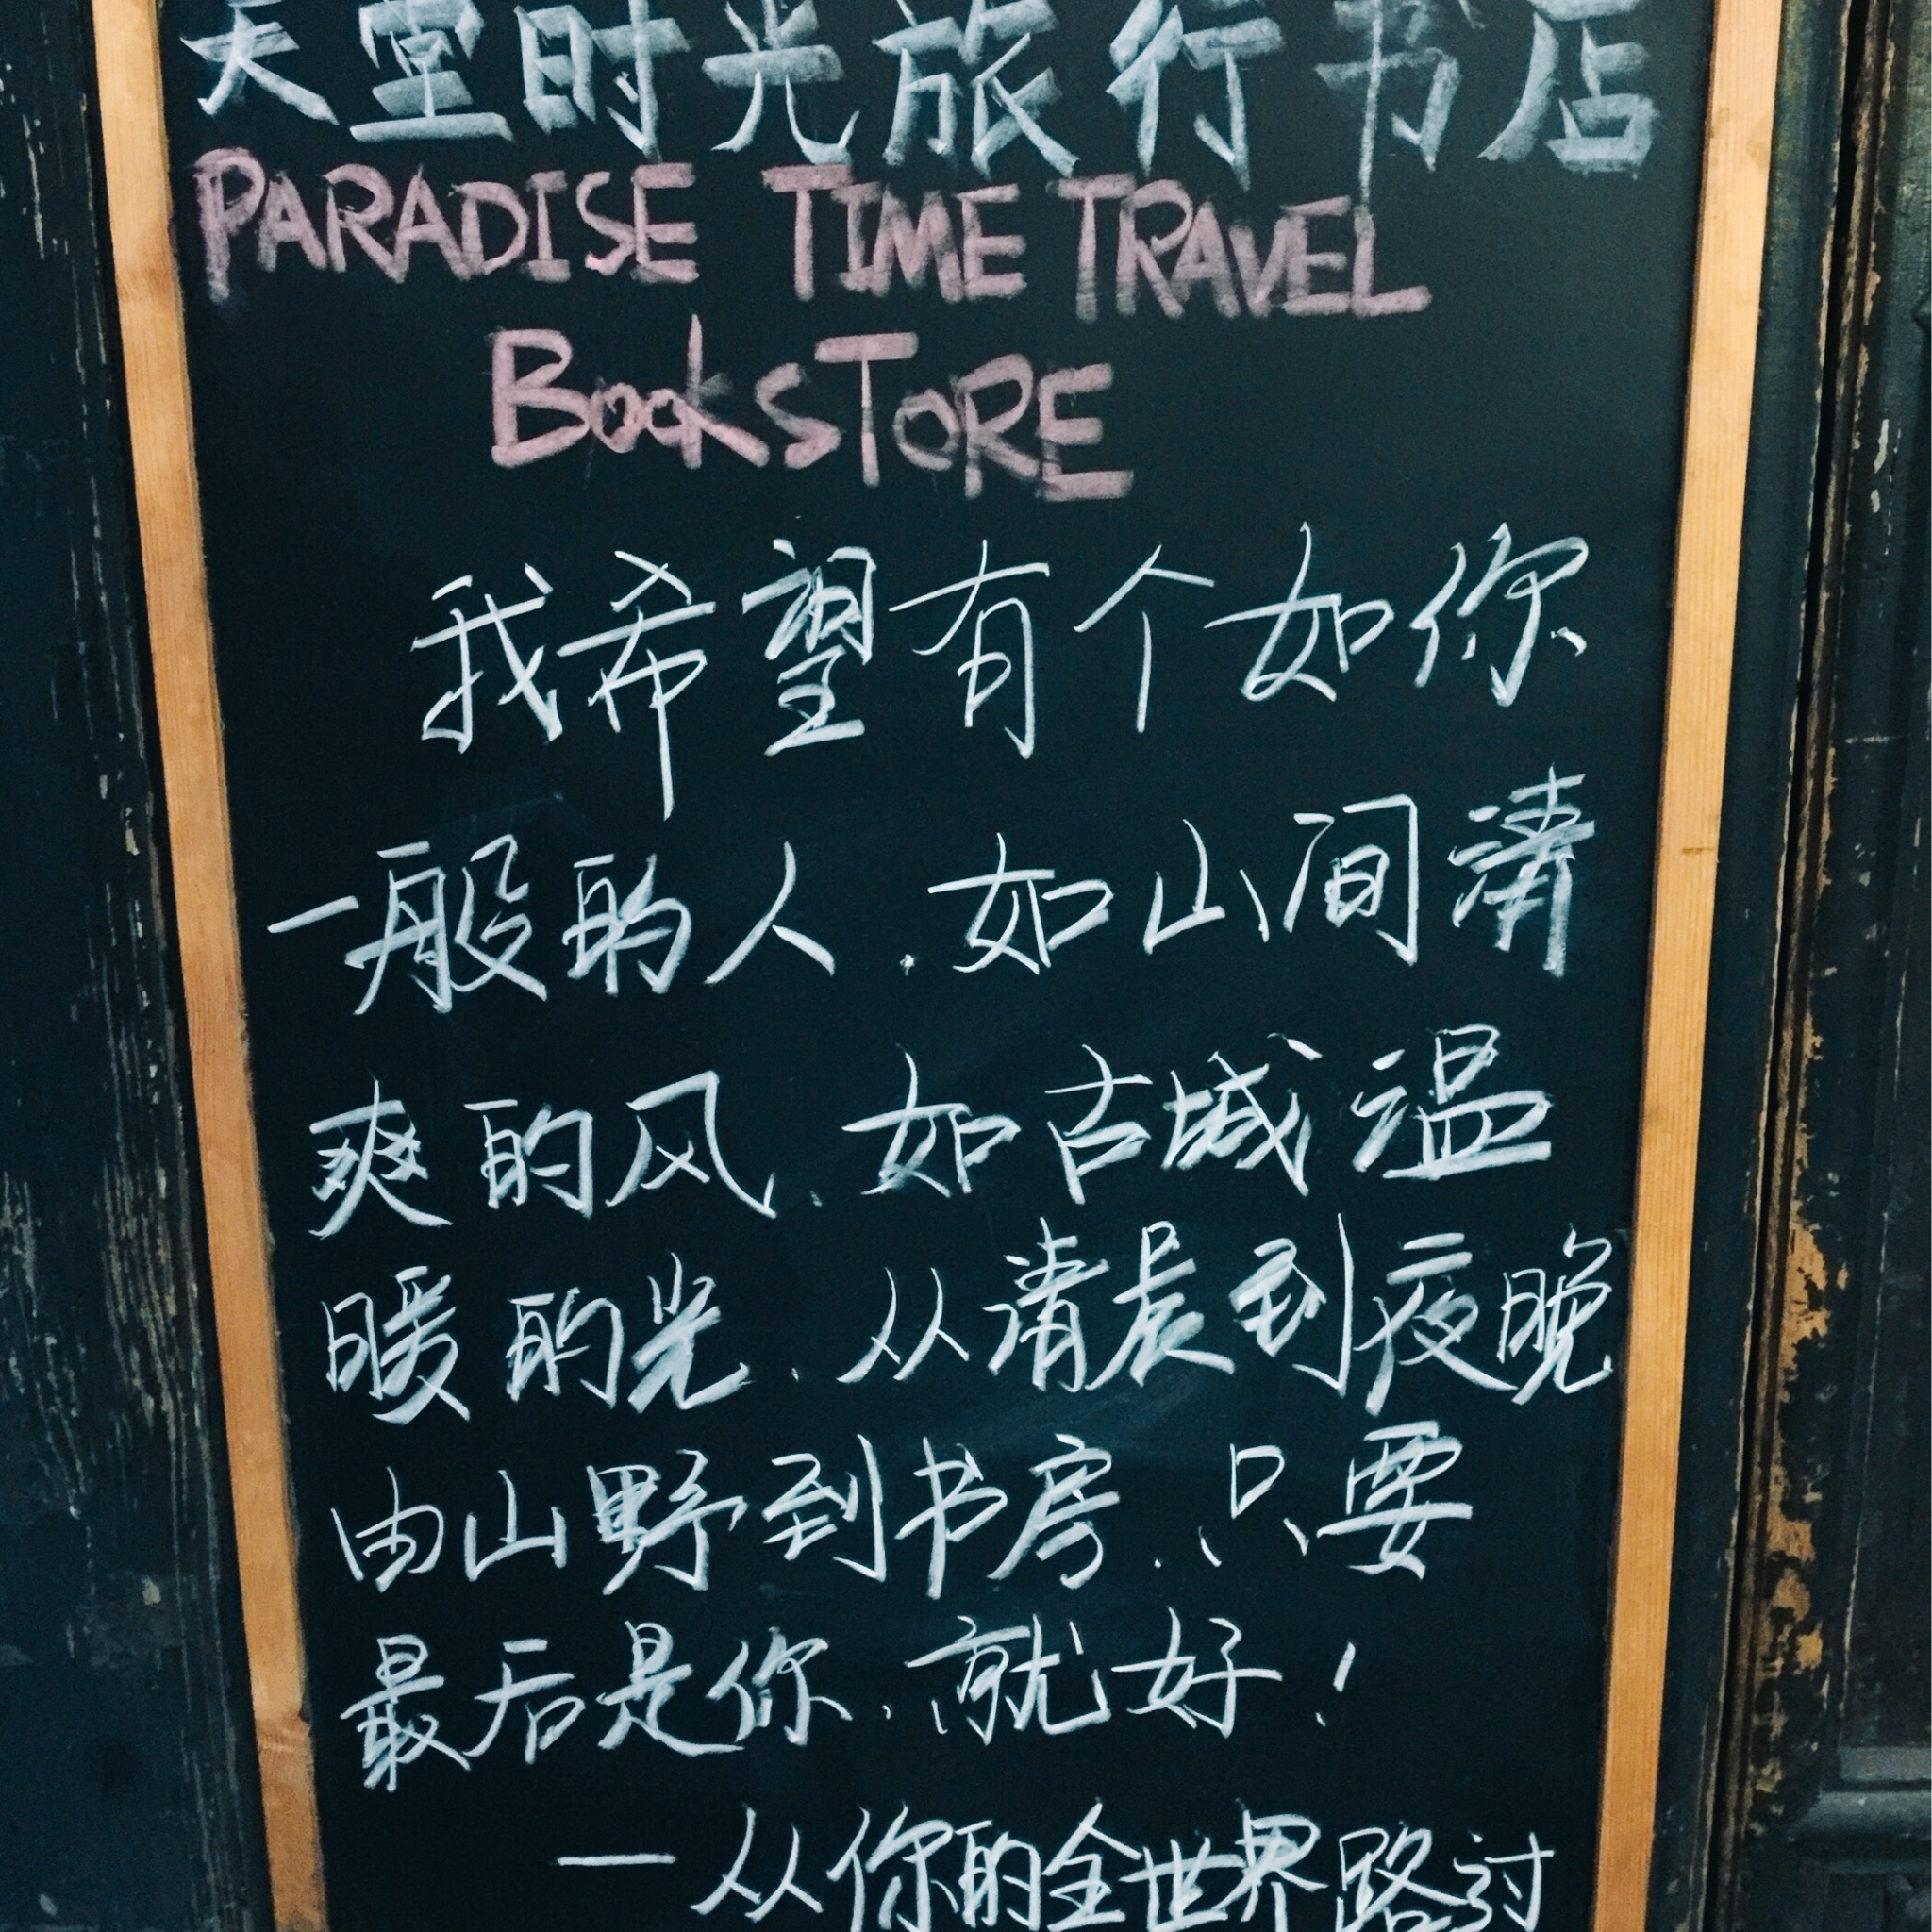 天堂时光旅行书店
PARADISE TIME TRAVEL
BOOKSTORE
我希望有个如你
一般的人.如山间清
爽的风.如古城温
暖的光.从清晨到夜晚
由山野到书房.只要
最后是你.就好!
—从你的全世界路过